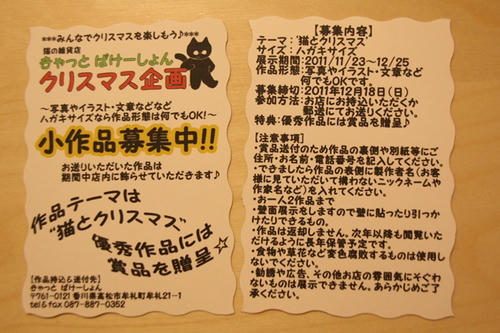 ***みんなでクリスマスを楽しもう♪***
猫の雑貨店
きゃっと ばけーしょん
クリスマス企画
～写真やイラスト・文章などなど
ハガキサイズなら作品形態は何でもOK!～
小作品募集中!!
お送りいただいた作品は
期間中店内に飾らせていただきます♪
作品テーマは
"猫とクリスマス"
優秀作品には
賞品を贈呈☆
【作品持込&送付先】
きゃっと ばけーしょん
〒761-0121 香川県高松市牟礼町牟礼21-1
tel&fax 087-887-0352
【募集内容】
テーマ:"猫とクリスマス"
サイズ:ハガキサイズ
展示期間:2011/11/23～12/25
作品形態:写真やイラスト・文章など
何でもOKです。
募集締切:2011年12月18日(日)
参加方法:お店にお持込いただくか
郵送にてお送りください。
特典:優秀作品には賞品を贈呈♪
【注意事項】
・賞品送付のため作品の裏側や別紙等にご
住所・お名前・電話番号を記入してください。
・できましたら作品の表側に製作者名(お客
様に見ていただいて構わないニックネームや
作家名など)を入れてください。
・お一人2作品まで
・壁面展示をしますので壁に貼ったり引っか
けたりできるもの。
・作品は返却しません。次年以降も閲覧いた
だけるように長年保管予定です。
・食物や草花など変色腐敗するものは使用し
ないでください。
・勧誘や広告、その他お店の雰囲気にそぐわ
ないものは展示できません。あらかじめご了
承ください。